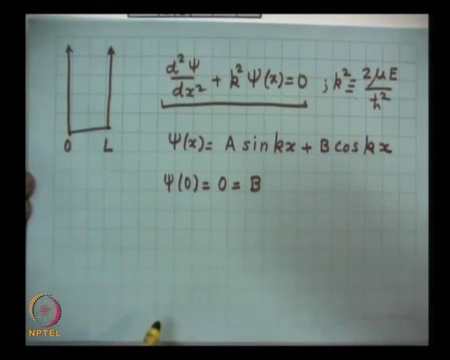 d²Ψ/dx² + k²Ψ(x)=0 ; k² ≡ 2μE/ħ²
Ψ(x)= A sinkx + B coskx
Ψ(0)= 0 = B
0 L
NPTEL